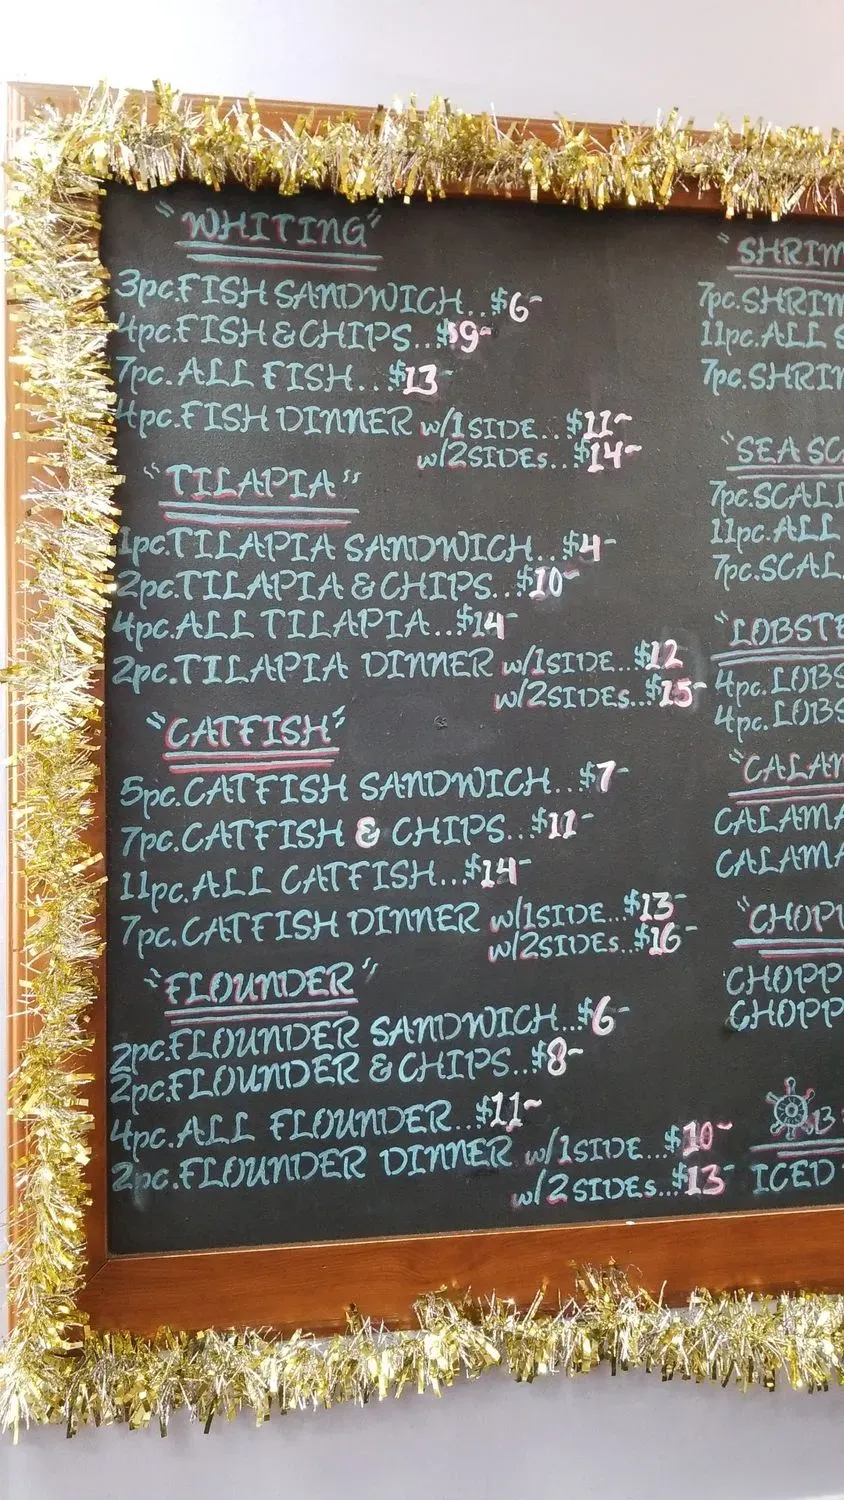 "WHITING"
3pc.FISH SANDWICH...$6-
4pc.FISH & CHIPS...$9-
7pc.ALL FISH...$13-
4pc.FISH DINNER w/1SIDE...$11~
w/2SIDEs...$14~
"TILAPIA"
1pc.TILAPIA SANDWICH...$4-
2pc.TILAPIA & CHIPS...$10~
4pc.ALL TILAPIA...$14-
2pc.TILAPIA DINNER w/1SIDE...$12
w/2SIDEs...$15-
"CATFISH"
5pc.CATFISH SANDWICH...$7-
7pc.CATFISH & CHIPS...$11-
11pc.ALL CATFISH...$14-
7pc.CATFISH DINNER w/1SIDE...$13-
w/2SIDEs...$16-
"FLOUNDER"
2pc.FLOUNDER SANDWICH...$6-
2pc.FLOUNDER & CHIPS...$8-
4pc.ALL FLOUNDER...$11~
2pc.FLOUNDER DINNER w/1SIDE...$10~
w/2SIDEs...$13-
"SHRIM
7pc.SHRIM
11pc.ALL S
7pc.SHRIM
"SEA SC
7pc.SCALL
11pc.ALL
7pc.SCAL
"LOBSTE
4pc.LOBS
4pc.LOBS
"CALAM
CALAMA
CALAMA
"CHOP
CHOPP
CHOPP
13
ICED